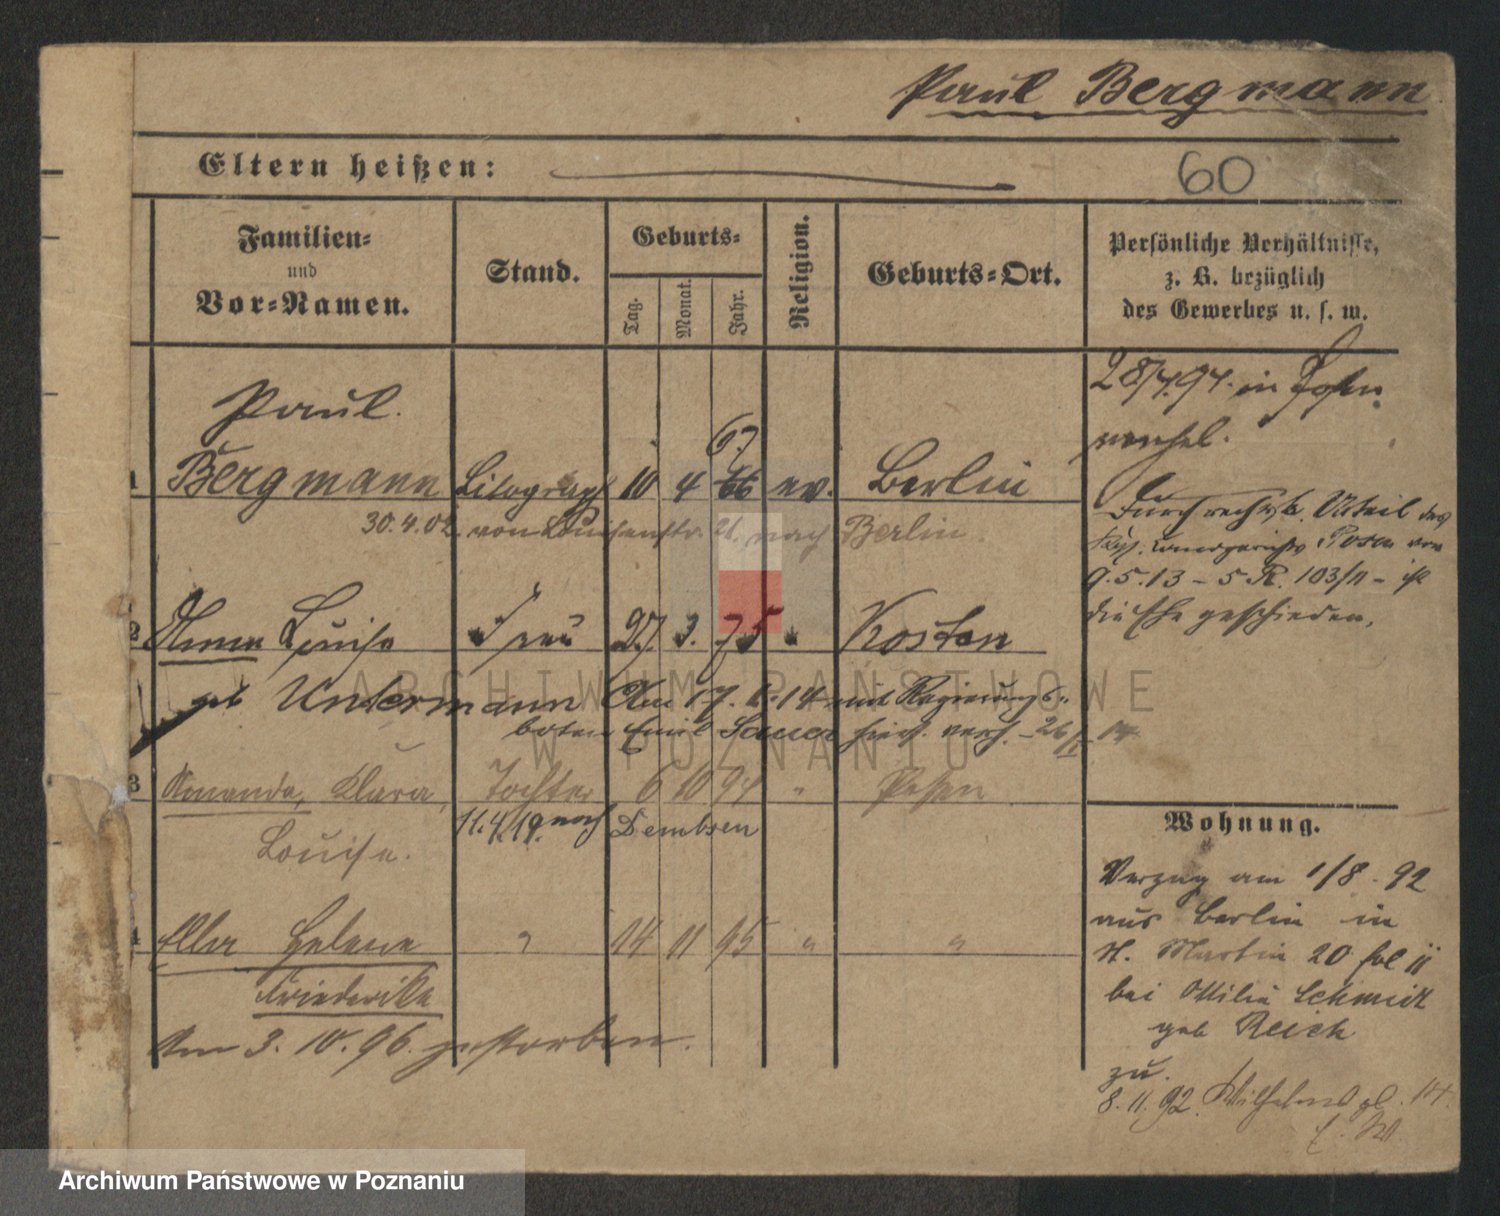 Paul Bergmann
Eltern heißen:
60
Familien-
und
Vor-Namen.
Stand.
Geburts-
Tag.
Monat.
Jahr.
Religion.
Geburts-Ort.
Persönliche Verhältnisse,
z. B. bezüglich
des Gewerbes u. s. w.
28/4.94. in
Paul
67
1 Bergmann Litograph 10 4 66 ev. Berlin
30.4.02. von Louisenstr. 21. nach Berlin
Durch rechtskr. Urteil des
Posen von
9.5.13 – 5 R. 103/11 – ist
die Ehe geschieden.
2 Anna Louise Frau 27. 3. 75 " Kosten
geb Untermann Am 17. 1. 14 mit Regierungs-
boten Emil Sauer hier. verh. – 26/1 14.
3 Amanda, Klara, Tochter 6 10 94 " Posen
11.4.19. nach Dembsen
Louise.
4 Ella Helene " 14 11 95 " "
Friederike
Am 3. 10. 96. gestorben.
Wohnung.
Verzug am 1/8. 92
aus Berlin in
St. Martin 20 II
bei Ottilie Schmidt
geb Reich
zu.
8. 11. 92. Wilhelmspl. 14.
ARCHIWUM PAŃSTWOWE
W POZNANIU
Archiwum Państwowe w Poznaniu